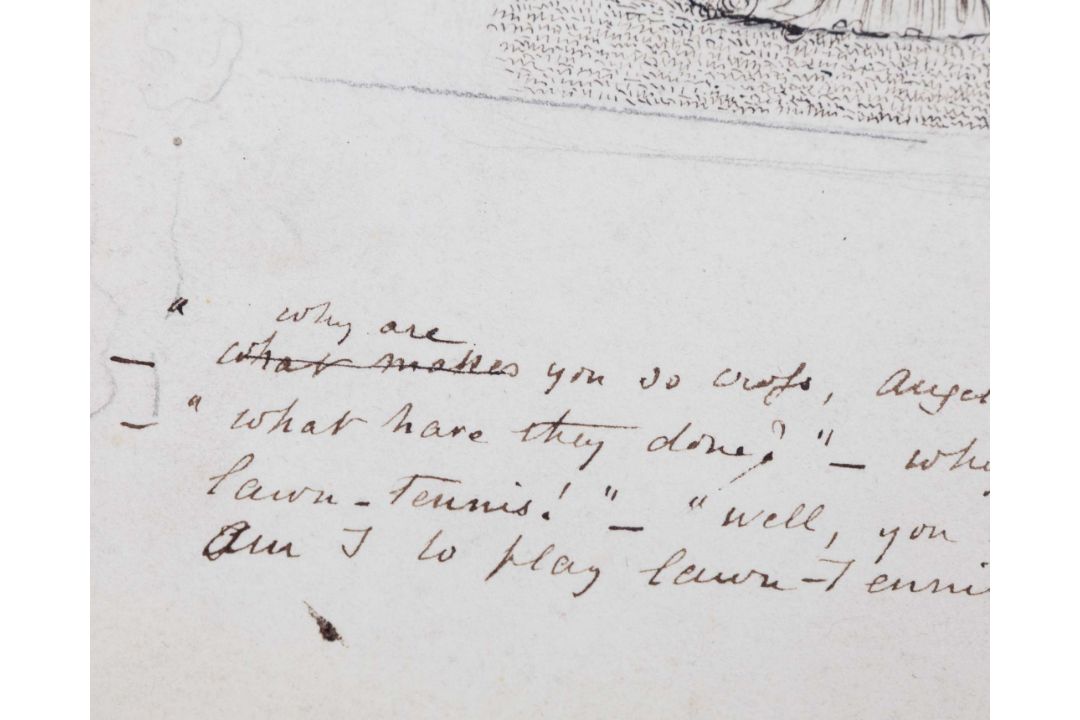 " why are
— what makes you so cross, Angel
— " what have they done?" — why
lawn-Tennis!" — " well, you
Am I to play lawn-Tenni